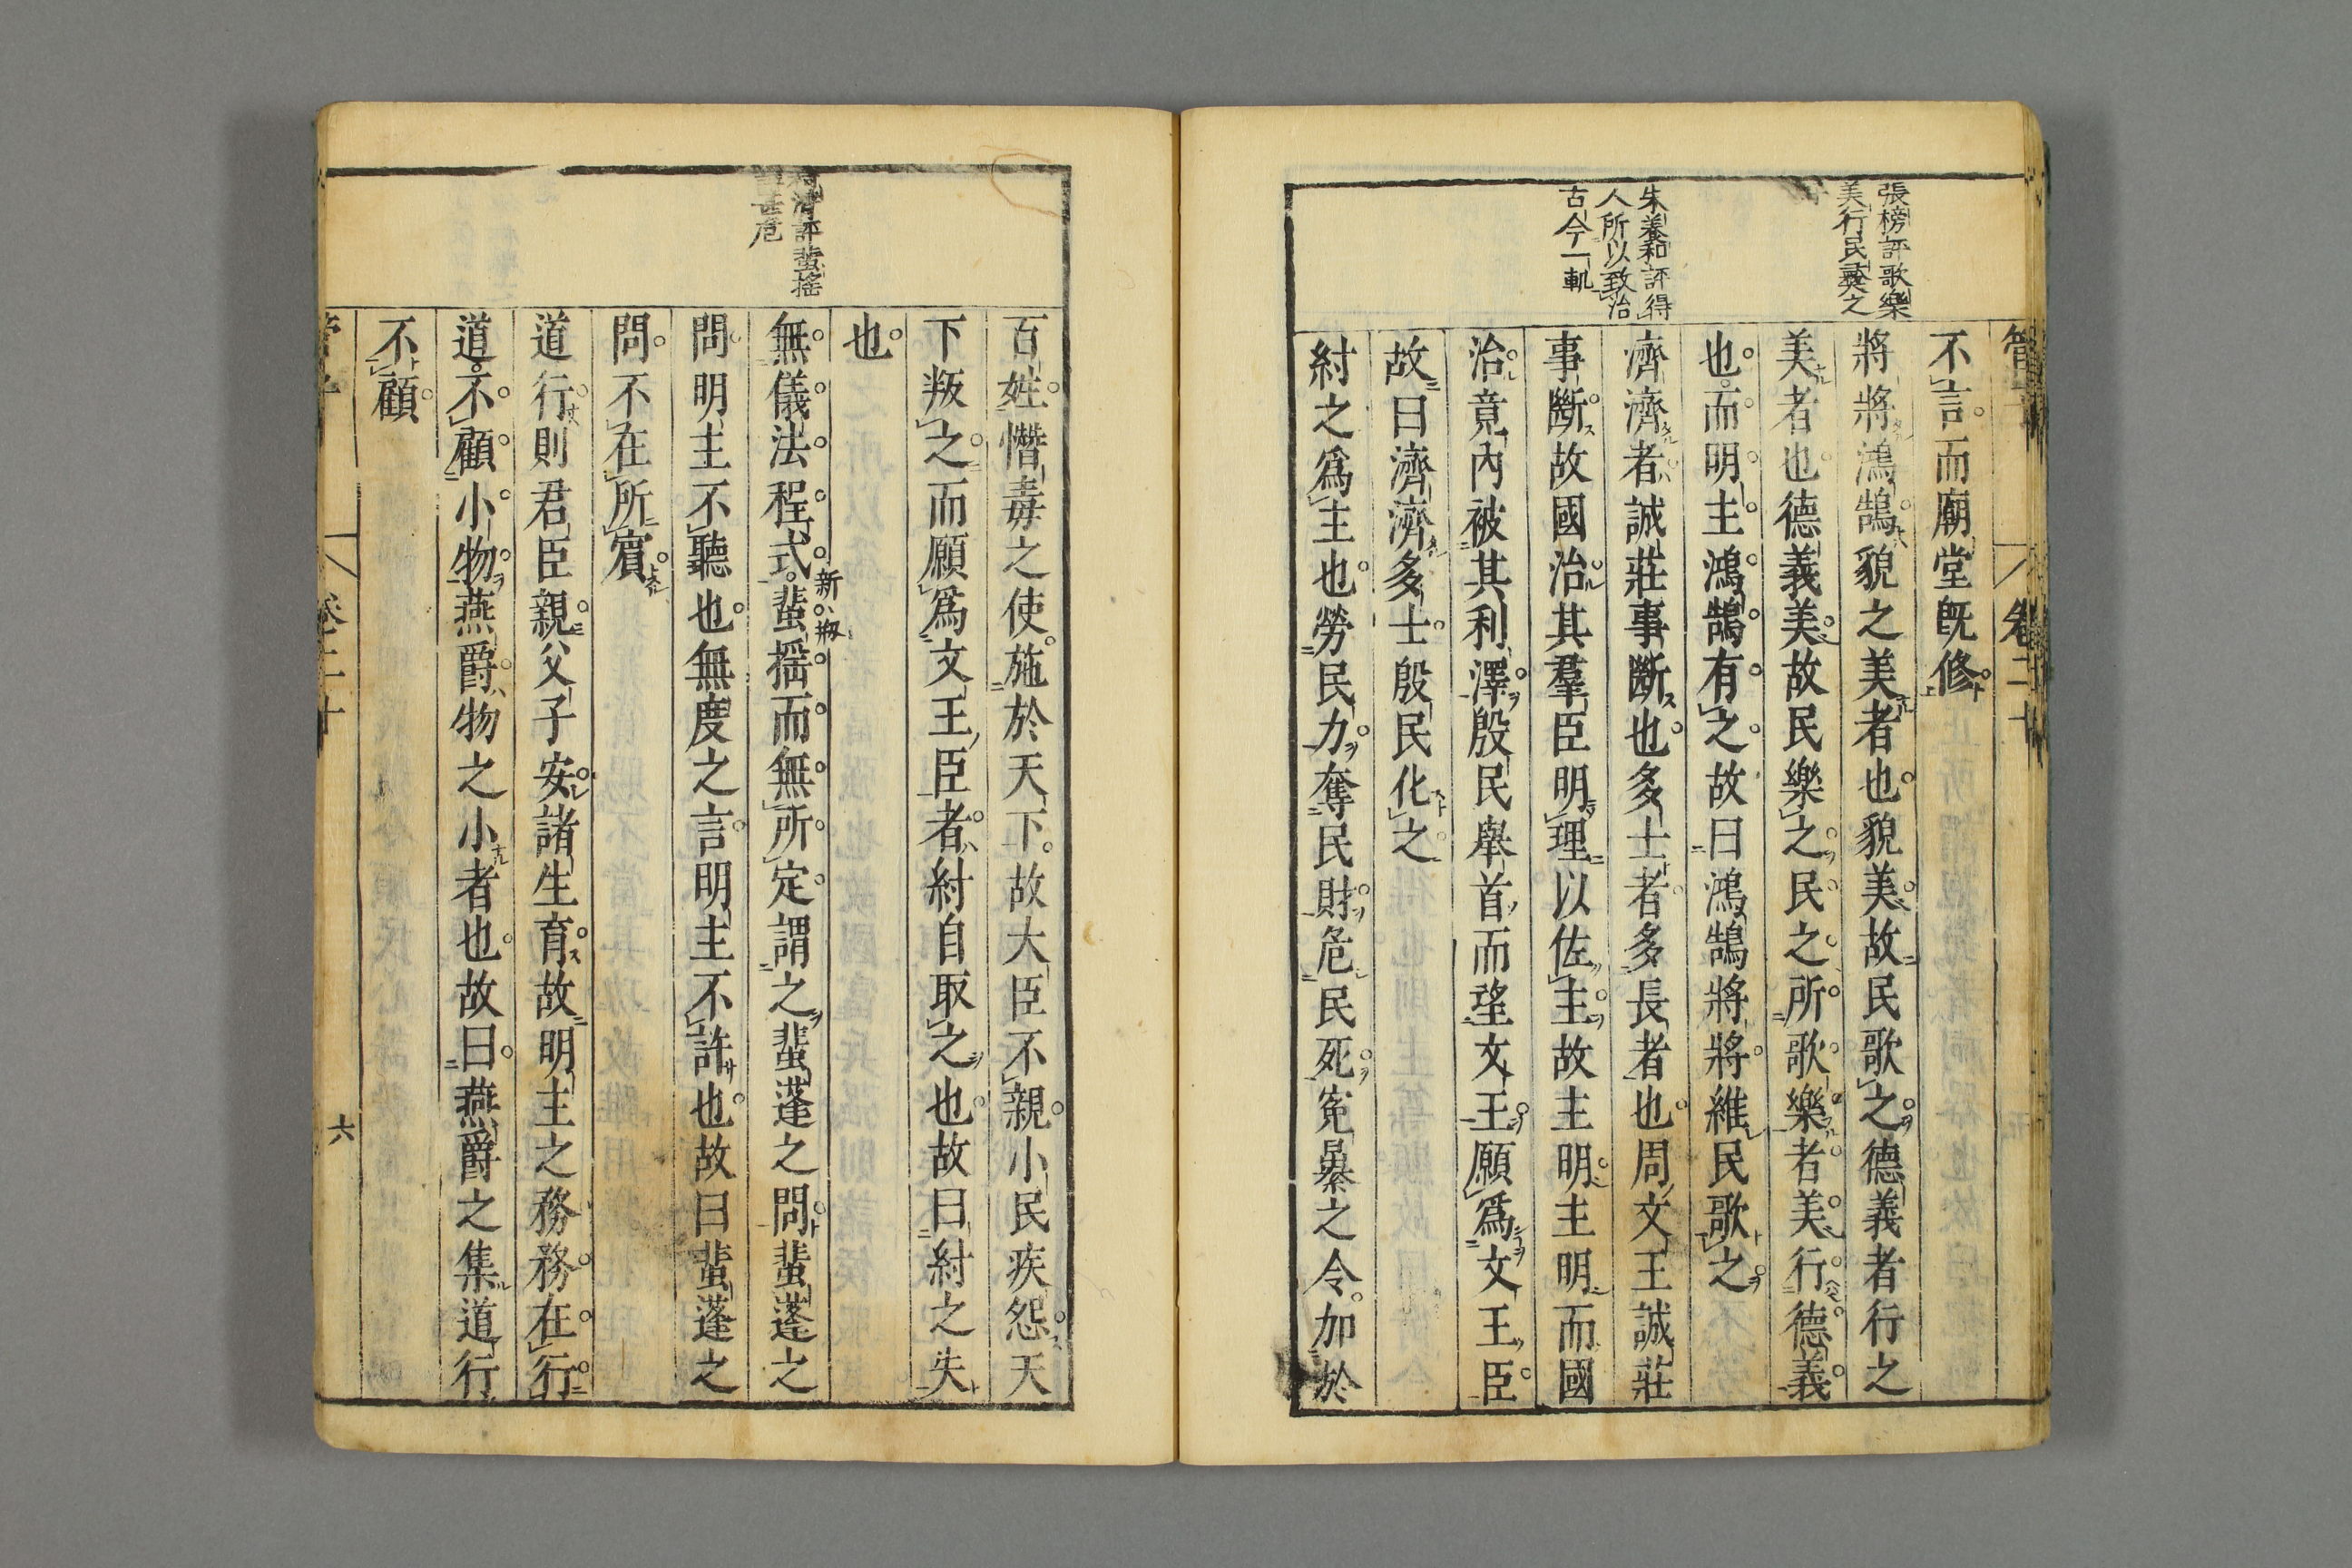 張榜評歌樂
美行民彝之
朱養和評得
人所以致治
古今一軌
卷二十
不言而廟堂既修
將將鴻鵠貌之美者也貌美故民歌之德義者行之
美者也德義美故民樂之民之所歌樂者美行德義
也而明主鴻鵠有之故曰鴻鵠將將維民歌之
濟濟者誠莊事斷也多士者多長者也周文王誠莊
事斷故國治其羣臣明理以佐主故主明主明而國
治竟內被其利澤殷民舉首而望文王願爲文王臣
故曰濟濟多士殷民化之
紂之爲主也勞民力奪民財危民死寃暴之令加於
評蜚搖
甚危
百姓憯毒之使施於天下故大臣不親小民疾怨天
下叛之而願爲文王臣者紂自取之也故曰紂之失
也
無儀法程式蜚揺而無所定謂之蜚蓬之問蜚蓬之
問明主不聽也無度之言明主不許也故曰蜚蓬之
問不在所賓
道行則君臣親父子安諸生育故明主之務務在行
道不顧小物燕爵物之小者也故曰燕爵之集道行
不顧
六